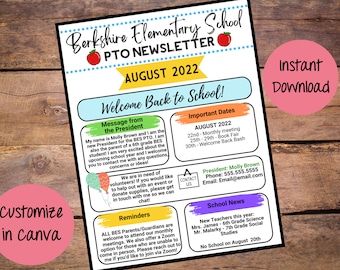 Berkshire Elementary School
PTO NEWSLETTER
AUGUST 2022
Welcome Back to School!
Message from
the President
My name is Molly Brown and I am the
new President for the BES PTO. I am
also the parent of a 6th grade BES
student! I am very excited about the
upcoming school year and I welcome
you to contact me with any questions
concerns or ideas!
Important Dates
AUGUST 2022
22nd - Monthly meeting
23rd - 29th - Book Fair
30th - Welcome Back Bash
We are in need of
volunteers! If you would like
to help out with an event or
donate supplies, please get
in touch with me so we can
chat!
CONTACT
US
President: Molly Brown
Phone: 555.555.5555
Email: Email@email.com
Reminders
ALL BES Parents/Guardians are
welcome to attend our monthly
meetings. We also offer a Zoom
option for those who are unable to
come in person. Please reach out
to me if you'd like to join via Zoom!
School News
New Teachers this year:
Mrs. James - 6th Grade Science
Mr. Malarky - 7th Grade Social
Studies
No School on August 20th
Instant
Download
Customize
in Canva